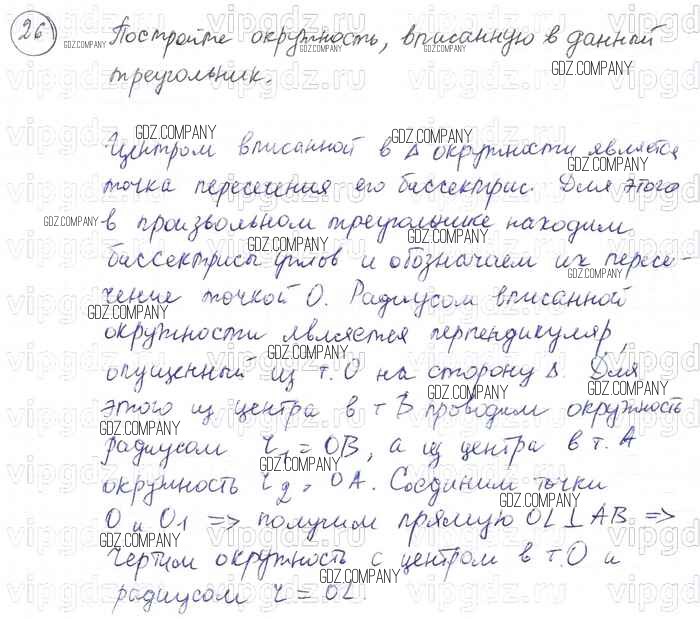 26 Постройте окружность, вписанную в данный
треугольник.
Центром вписанной в Δ окружности является
точка пересечения его биссектрис. Для этого
в произвольном треугольнике находим
биссектрисы углов и обозначаем их пересе-
чение точкой O. Радиусом вписанной
окружности является перпендикуляр,
опущенный из т. O на сторону Δ. Для
этого из центра в т B проводим окружность
радиусом r₁ = OB, а из центра в т. A
окружность r₂ = OA. Соединим точки
O и O1 => получим прямую OL ⊥ AB =>
Чертим окружность с центром в т. O и
радиусом r = OL.